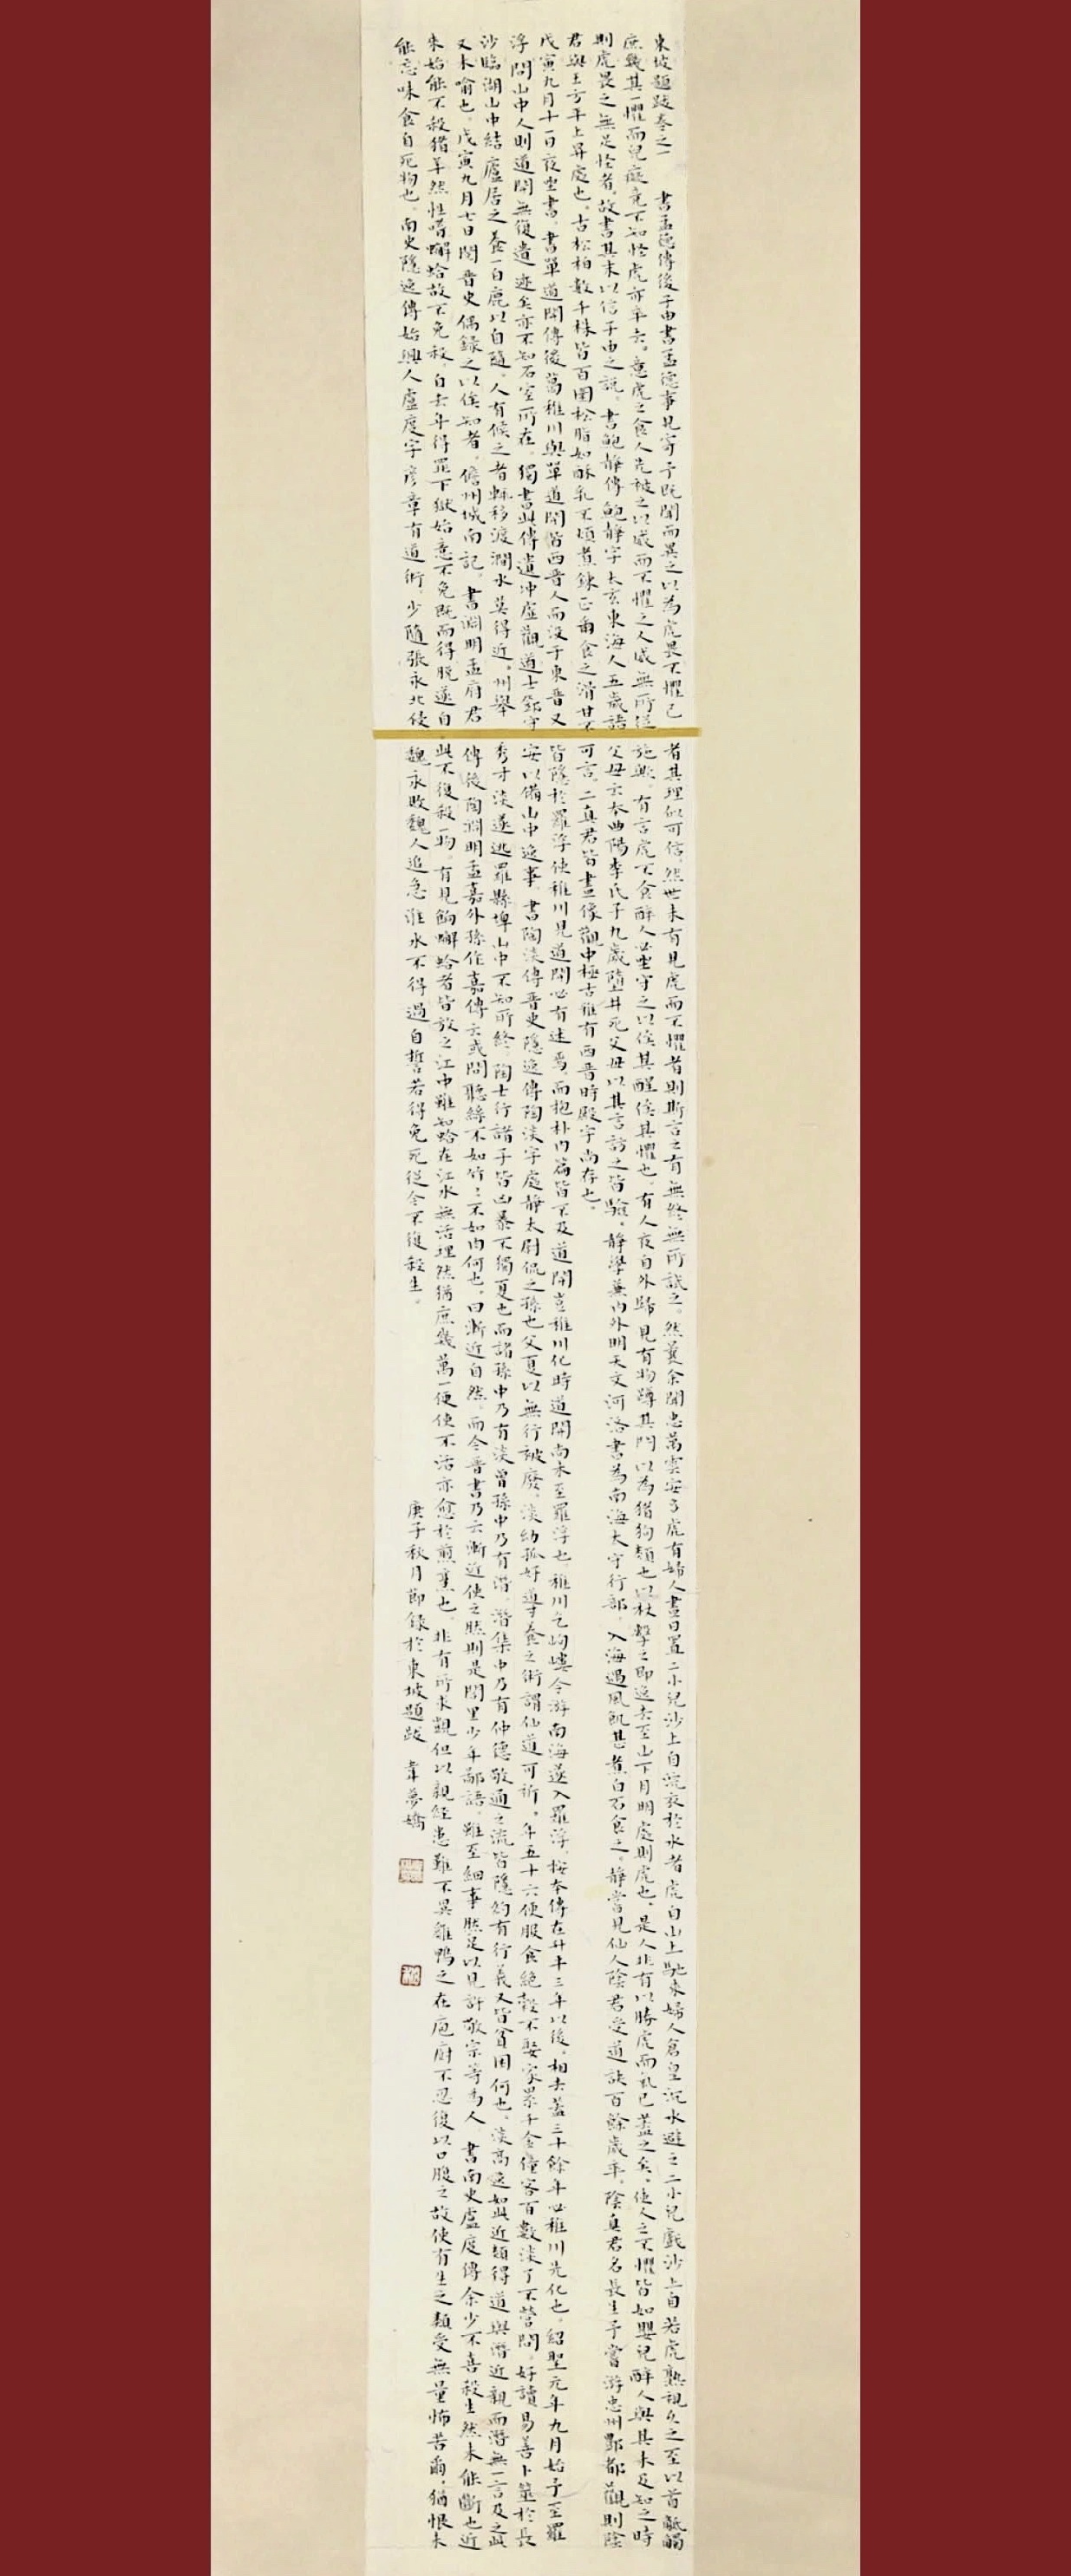 東坡題跋卷之一 書孟德傳後子由書孟德事見寄予既聞而異之以為虎畏不懼己者其理似可信。然世未有見虎而不懼者則斯言之有無終無所試之。然曩余聞忠萬雲安多虎有婦人晝日置二小兒沙上自浣衣於水者虎自山上馳來婦人倉皇沉水避之二小兒戲沙上自若虎熟視久之至以首觝觸
庶幾其一懼而兒癡竟不知怪虎亦卒去。意虎之食人先被之以威而不懼之人威無所從施歟。有言虎不食醉人必坐守之以俟其醒俟其懼也。有人夜自外歸見有物蹲其門以為猪狗類也以杖擊之即逸去至山下月明處則虎也。是人非有以勝虎而氣已蓋之矣。使人之不懼皆如嬰兒醉人與其未及知之時
則虎畏之無足怪者。故書其末以信子由之說。書鮑靜傳鮑靜字太玄東海人五歲語父母云本曲陽李氏子九歲墮井死父母以其言訪之皆驗。靜學兼內外明天文河洛書為南海太守行部。入海遇風飢甚煮白石食之。靜嘗見仙人陰君受道訣百餘歲卒。陰真君名長生予嘗游忠州酆都觀則陰
君與王方平上昇處也。古松柏數千株皆百圍松脂如酥乳不煩煮鍊正爾食之滑甘不可言。二真君皆畫像觀中極古雅有西晉時殿宇尚存也。
戊寅九月十一日夜坐書。書單道開傳後葛稚川與單道開皆西晉人而沒于東晉又皆隱於羅浮使稚川見道開必有述焉。而抱朴內篇皆不及道開豈稚川化時道開尚未至羅浮也稚川乞岣嶁令游南海遂入羅浮。按本傳在升平三年以後。相去蓋三十餘年必稚川先化也。紹聖元年九月始予至羅
浮問山中人則道開無復遺迹矣亦不知石室所在。獨書此傳遺冲虛觀道士鄧守安以備山中逸事。書陶淡傳晉史隱逸傳陶淡字處靜太尉侃之孫也父夏以無行被廢。淡幼孤好導養之術謂仙道可祈。年五十六便服食絕穀不娶家累千金僮客百數淡了不營問。好讀易善卜筮於長
沙臨湖山中結廬居之養一白鹿以自隨。人有候之者輒移渡澗水莫得近。州舉秀才淡遂逃羅縣埤山中不知所終。陶士行諸子皆凶暴不獨夏也而諸孫中乃有淡曾孫中乃有潛。潛集中乃有仲德敬通之流皆隱約有行義又皆貧困何也。淡高逸如此近類得道與潛近親而潛無一言及之此
又未喻也。戊寅九月七日閱晉史偶錄之以俟知者。儋州城南記。書淵明孟府君傳後陶淵明孟嘉外孫作嘉傳云或問聽絲不如竹:不如肉何也。曰漸近自然。而今晉書乃云漸近使之然則是閭里少年鄙語。雖至細事然足以見許敬宗等為人。書南史盧度傳余少不喜殺生然未能斷也近
來始能不殺猪羊然性嗜蠏蛤故不免殺。自去年得罪下獄始意不免既而得脫遂自此不復殺一物。有見餉蠏蛤者皆放之江中雖知蛤在江水無活理然猶庶幾萬一便使不活亦愈於煎烹也。非有所求覬但以親經患難不異雞鴨之在庖廚不忍復以口腹之故使有生之類受無量怖苦爾。猶恨未
能忘味食自死物也。南史隱逸傳始興人盧度字彥章有道術。少隨張永北侵魏永敗魏人追急淮水不得過自誓若得免死從今不復殺生。
庚子秋月節錄於東坡題跋 韋夢嬌